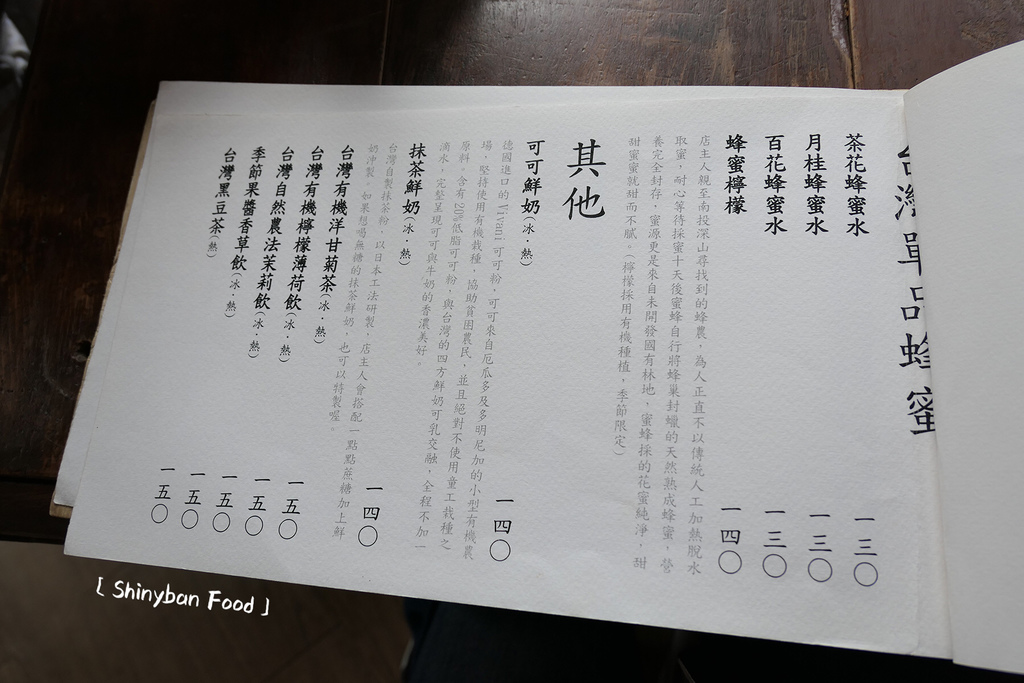 台灣單品蜂蜜
茶花蜂蜜水 一三〇
月桂蜂蜜水 一三〇
百花蜂蜜水 一三〇
蜂蜜檸檬 一四〇
店主人親至南投深山尋找到的蜂農，為人正直不以傳統人工加熱脫水
取蜜，耐心等待採蜜十天後蜜蜂自行將蜂巢封蠟的天然熟成蜂蜜，營
養完全封存，蜜源更是來自未開發國有林地，蜜蜂採的花蜜純淨，甜
甜蜜蜜就甜而不膩。（檸檬採用有機種植，季節限定）
其他
可可鮮奶（冰．熱） 一四〇
德國進口的Vivani可可粉，可可來自厄瓜多及多明尼加的小型有機農
場，堅持使用有機栽種，協助貧困農民，並且絕對不使用童工栽種之
原料，含有20%低脂可可粉，與台灣的四方鮮奶可乳交融，全程不加一
滴水，完整呈現可可與牛奶的香濃美好。
抹茶鮮奶（冰．熱） 一四〇
台灣自製抹茶粉，以日本工法研製，店主人會搭配一點點蔗糖加上鮮
奶沖製。如果想喝無糖的抹茶鮮奶，也可以特製喔。
台灣有機洋甘菊茶（冰．熱） 一五〇
台灣有機檸檬薄荷飲（冰．熱） 一五〇
台灣自然農法茉莉飲（冰．熱） 一五〇
季節果醬香草飲（冰．熱） 一五〇
台灣黑豆茶（熱） 一五〇
[ Shinyban Food ]